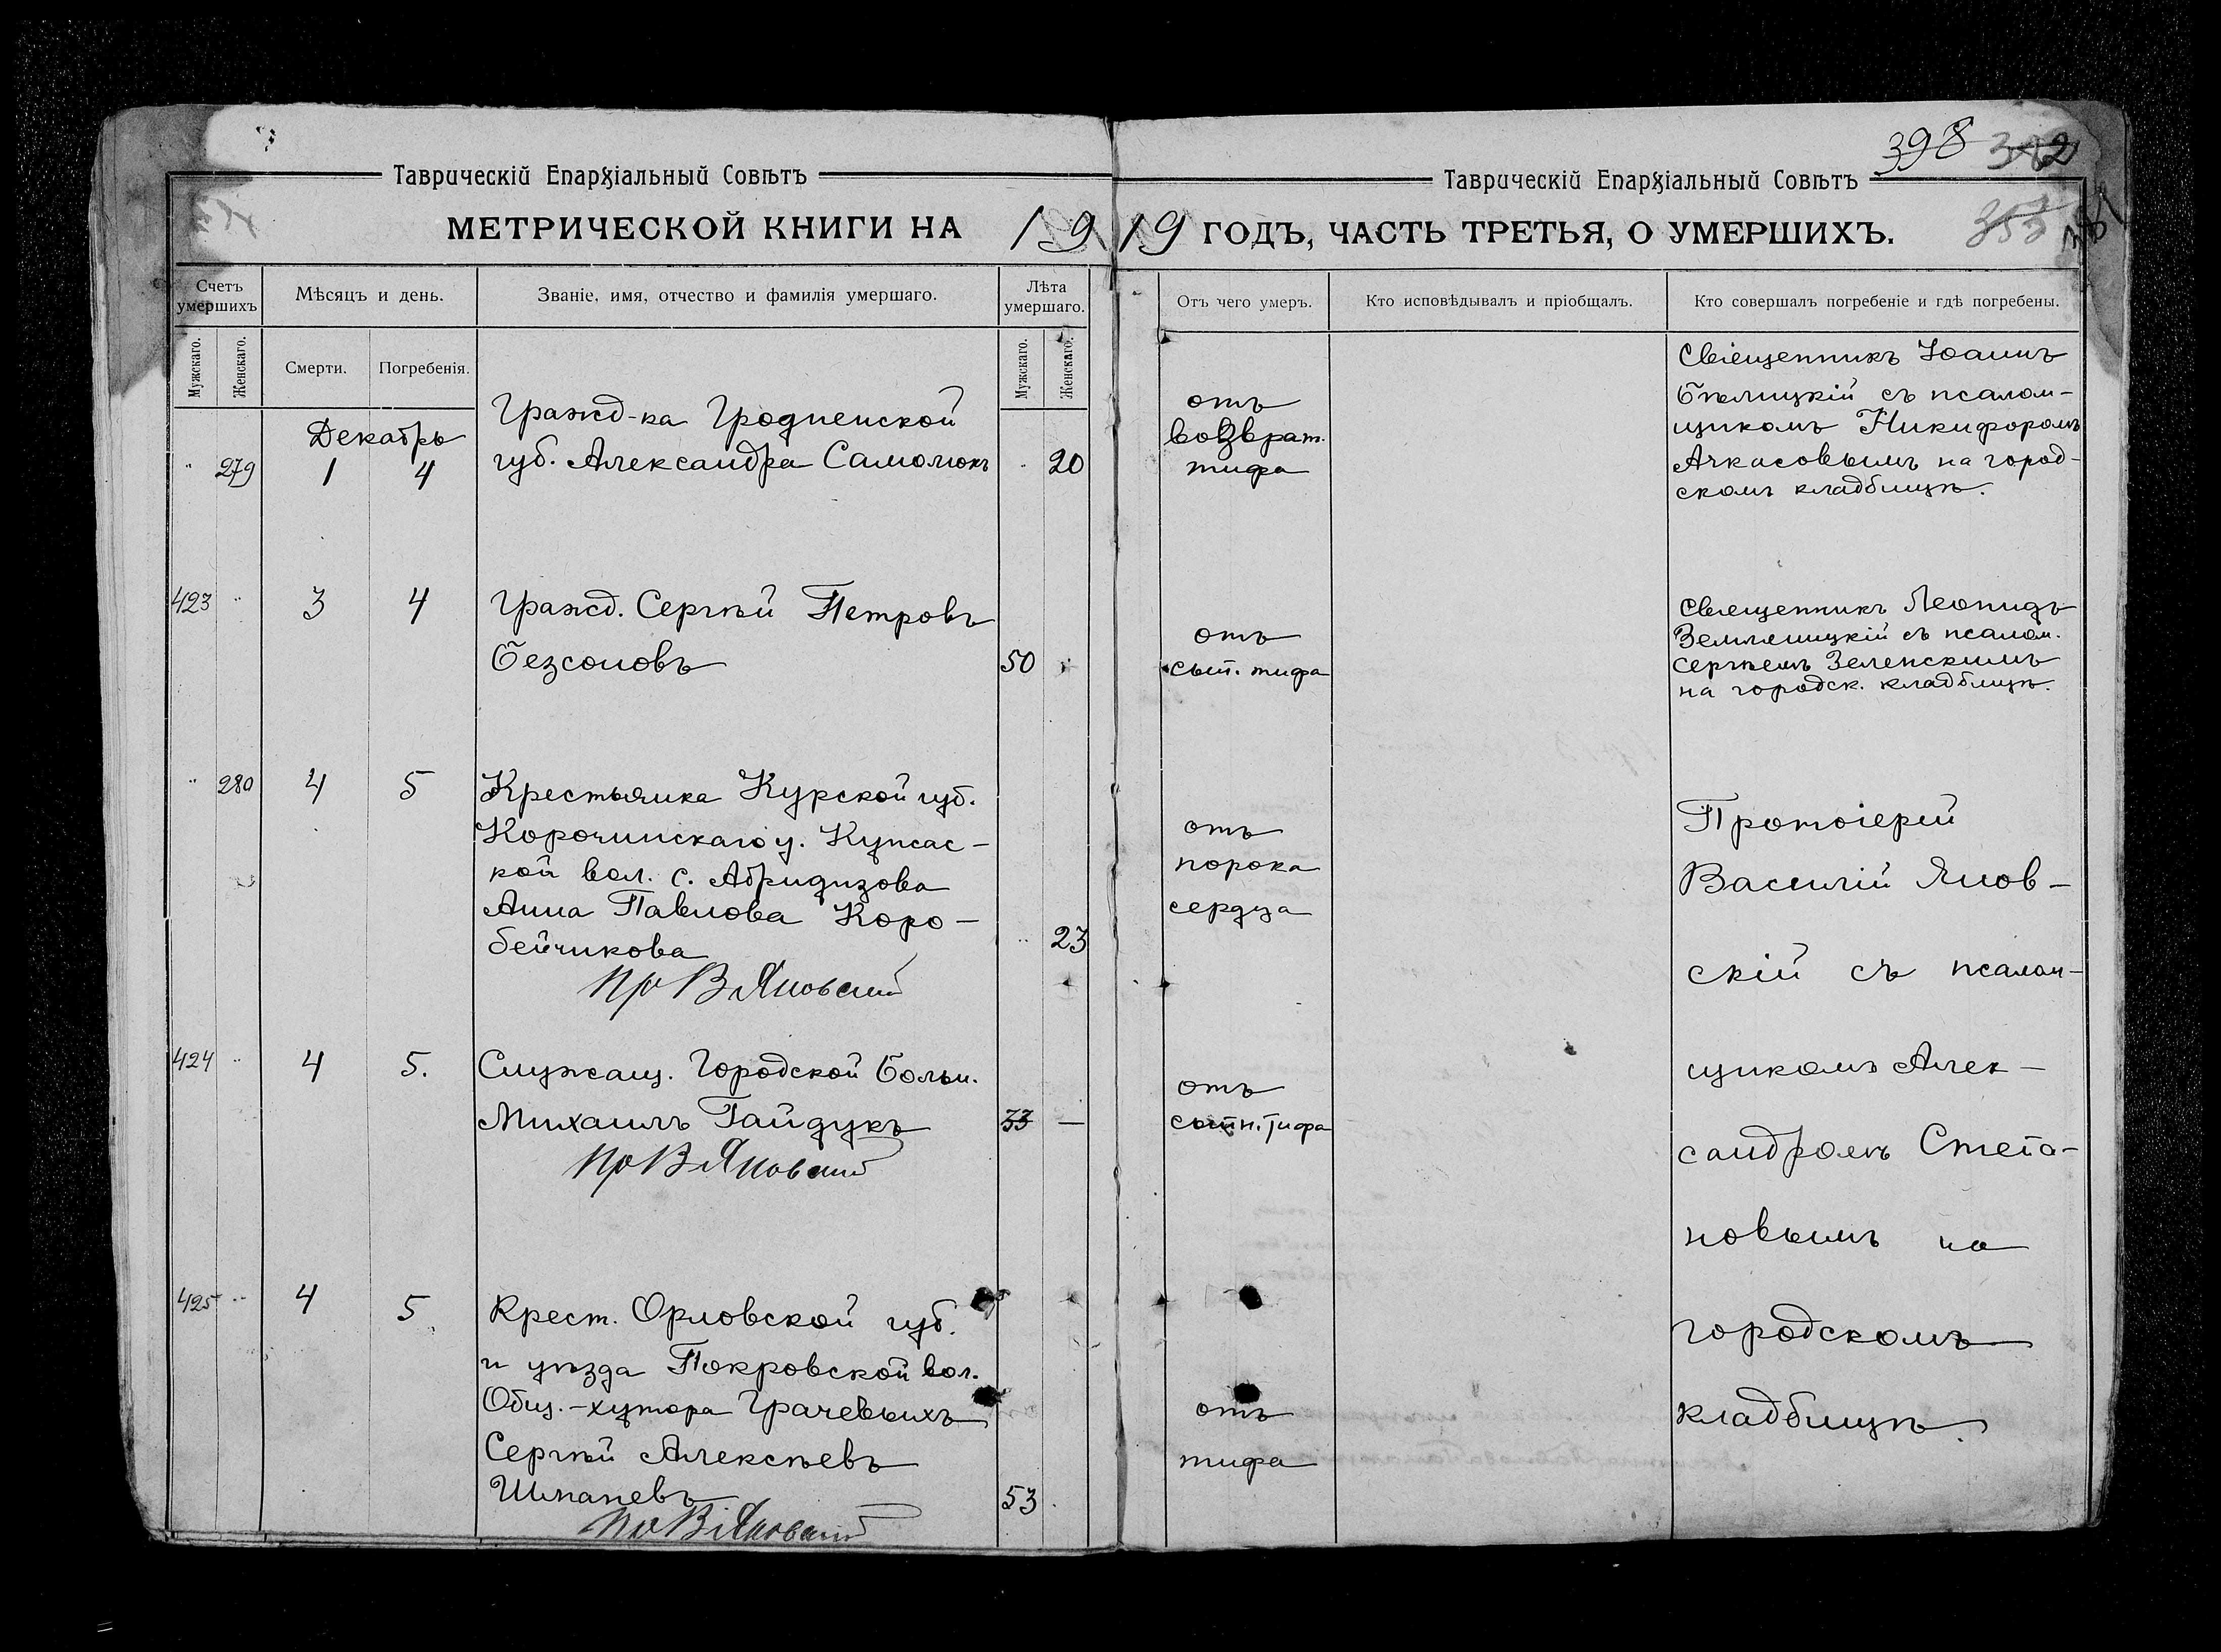 398 382
353 381
Таврическій Епархіальный Совѣтъ
МЕТРИЧЕСКОЙ КНИГИ НА 19
Таврическій Епархіальный Совѣтъ
19 ГОДЪ, ЧАСТЬ ТРЕТЬЯ, О УМЕРШИХЪ.
Счетъ умершихъ
Мѣсяцъ и день.
Званіе, имя, отчество и фамилія умершаго.
Лѣта умершаго.
Отъ чего умеръ.
Кто исповѣдывалъ и пріобщалъ.
Кто совершалъ погребеніе и гдѣ погребены.
Мужскаго.
Женскаго.
Смерти.
Погребенія.
Мужскаго.
Женскаго.
Декабрь
" 279 1 4
Гражд-ка Гродненской
губ. Александра Самолюкъ
" 20
отъ
возврат.
тифа
Священникъ Іоаннъ
Бѣлицкій съ псалом-
щикомъ Никифоромъ
Ачкасовымъ на город-
скомъ кладбищѣ.
423 " 3 4
Гражд. Сергѣй Петровъ
Безсоновъ
50 "
отъ
сып. тифа
Священникъ Леонидъ
Земляницкій съ псалом.
Сергѣемъ Зеленскимъ
на городск. кладбищѣ.
" 280 4 5
Крестьянка Курской губ.
Корочинскаго у. Купсас-
кой вол. с.
Анна Павлова Коро-
бейчикова
" 23
пр В Яновский
отъ
порока
сердца
Протоіерей
Василій Янов-
скій съ псалом-
щикомъ Алек-
сандромъ Степа-
новымъ на
городскомъ
кладбищѣ.
424 " 4 5.
Служащ. Городской Больн.
Михаилъ Гайдукъ
33 —
пр В Яновский
отъ
сыпн. тифа
425 " 4 5.
Крест. Орловской губ.
и уѣзда Покровской вол.
Общ. - хутора Грачевыхъ
Сергѣй Алексѣевъ
Шпаневъ
53
пр В Яновский
отъ
тифа